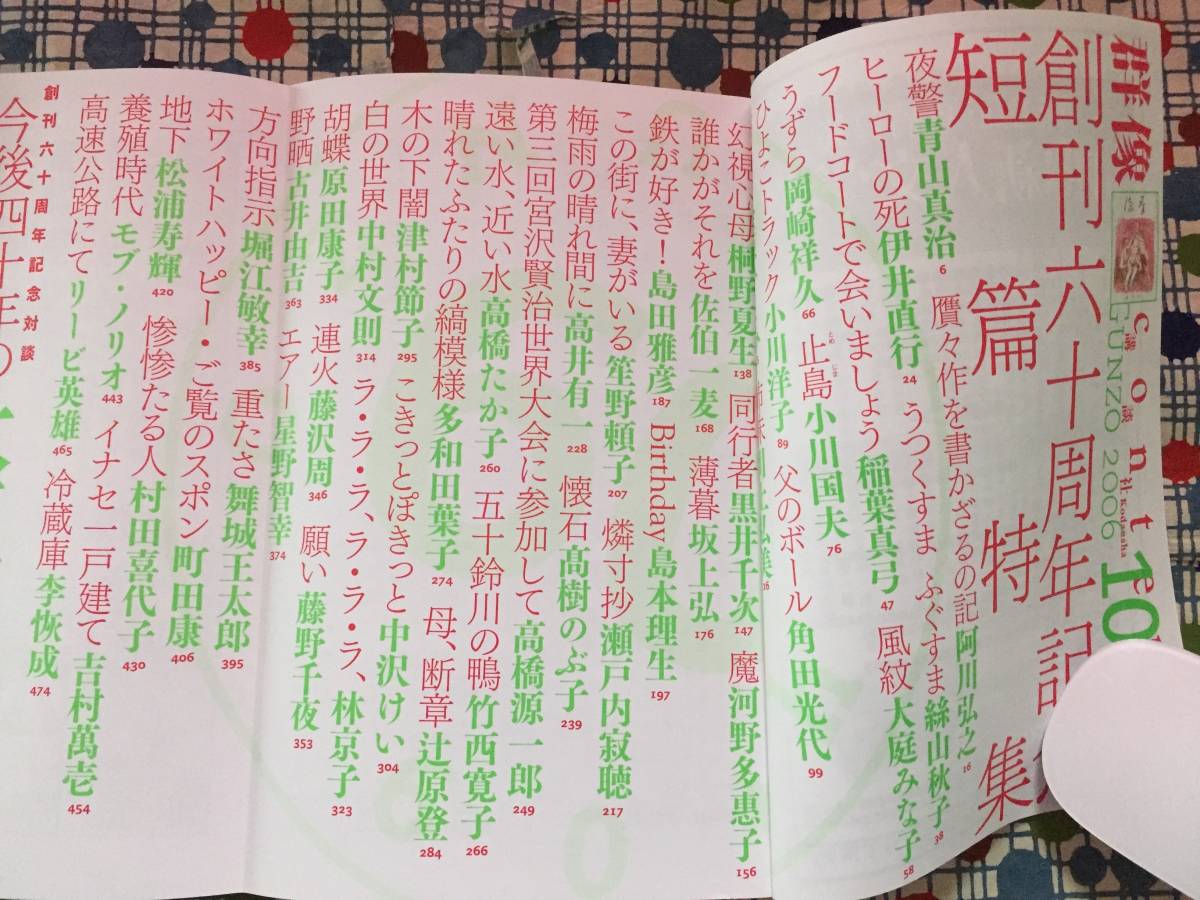 群像
contente
講談社 Kodansha
GUNZO 2006
10
創刊六十周年記
短篇特集
夜警 青山真治 6 贋々作を書かざるの記 阿川弘之 16
ヒーローの死 伊井直行 24 うつくすま ふぐすま 絲山秋子 38
フードコートで会いましょう 稲葉真弓 47 風紋 大庭みな子 58
うずら 岡崎祥久 66 止島 小川国夫 76
とめじま
ひよこトラック 小川洋子 89 父のボール 角田光代 99
幻視心母 桐野夏生 138 同行者 黒井千次 147 魔 河野多惠子 156
誰かがそれを 佐伯一麦 168 薄暮 坂上弘 176
鉄が好き! 島田雅彦 187 Birthday 島本理生 197
この街に、妻がいる 笙野頼子 207 燐寸抄 瀬戸内寂聴 217
梅雨の晴れ間に 高井有一 228 懐石 髙樹のぶ子 239
第三回宮沢賢治世界大会に参加して 高橋源一郎 249
遠い水、近い水 高橋たか子 260 五十鈴川の鴨 竹西寛子 266
晴れたふたりの縞模様 多和田葉子 274 母、断章 辻原登 284
木の下闇 津村節子 295 こきっとぽきっと 中沢けい 304
白の世界 中村文則 314 ラ・ララララ、ラ・ラ・ラ、 林京子 323
胡蝶 原田康子 334 連火 藤沢周 346 願い 藤野千夜 353
野晒 古井由吉 363 エアー 星野智幸 374
方向指示 堀江敏幸 385 重たさ 舞城王太郎 395
ホワイトハッピー・ご覧のスポン 町田康 406
地下 松浦寿輝 420 惨惨たる人 村田喜代子 430
養殖時代 モブ・ノリオ 443 イナセ一戸建て 吉村萬壱 454
高速公路にて リービ英雄 465 冷蔵庫 李恢成 474
創刊六十周年記念対談
今後四十年の